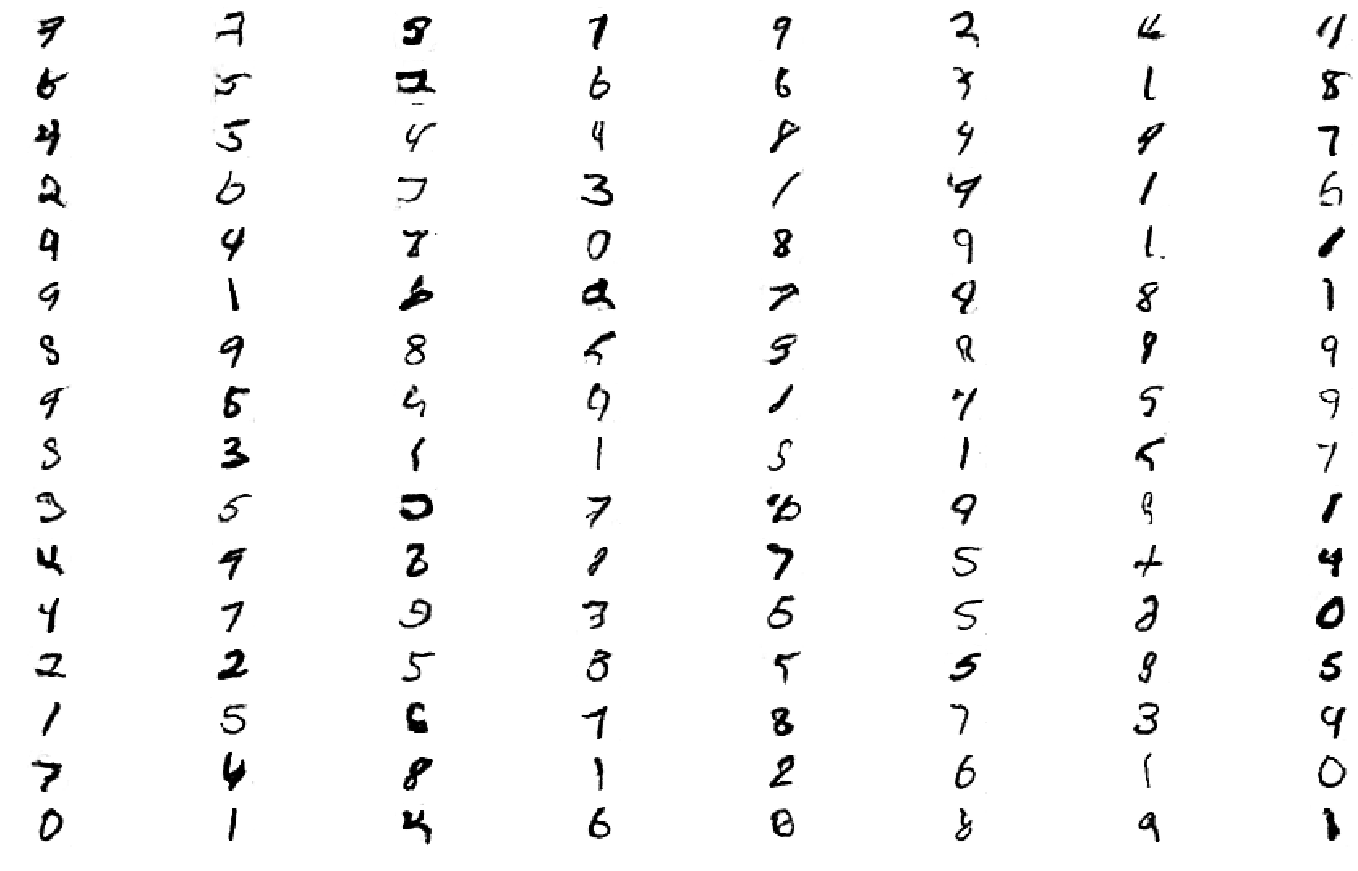 7 7 5 1 9 2 4 4
6 5 2 6 6 3 1 8
4 5 4 4 8 4 9 7
2 6 3 1 9 1 5
9 4 7 0 8 9 1 1
9 1 6 2 7 8 8 1
8 9 8 5 9 8 9 9
9 5 9 9 1 7 5 9
8 3 1 1 5 1 5 7
3 5 7 6 9 9 1
4 9 8 8 7 5 4 4
4 7 9 3 6 5 8 0
2 2 5 8 5 5 8 5
1 5 6 7 8 7 3 9
7 4 8 1 2 6 1 0
0 1 4 6 0 8 9 1